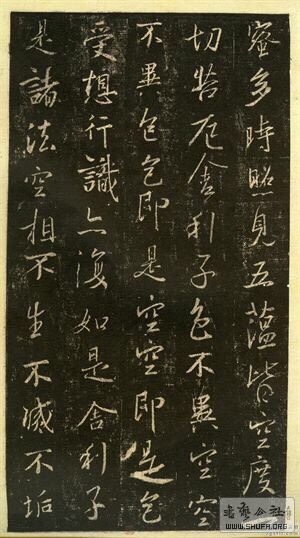 蜜多時照見五蘊皆空度一
切苦厄舍利子色不異空空
不異色色即是空空即是色
受想行識亦復如是舍利子
是諸法空相不生不滅不垢
書法公社
WWW.SHUFA.ORG